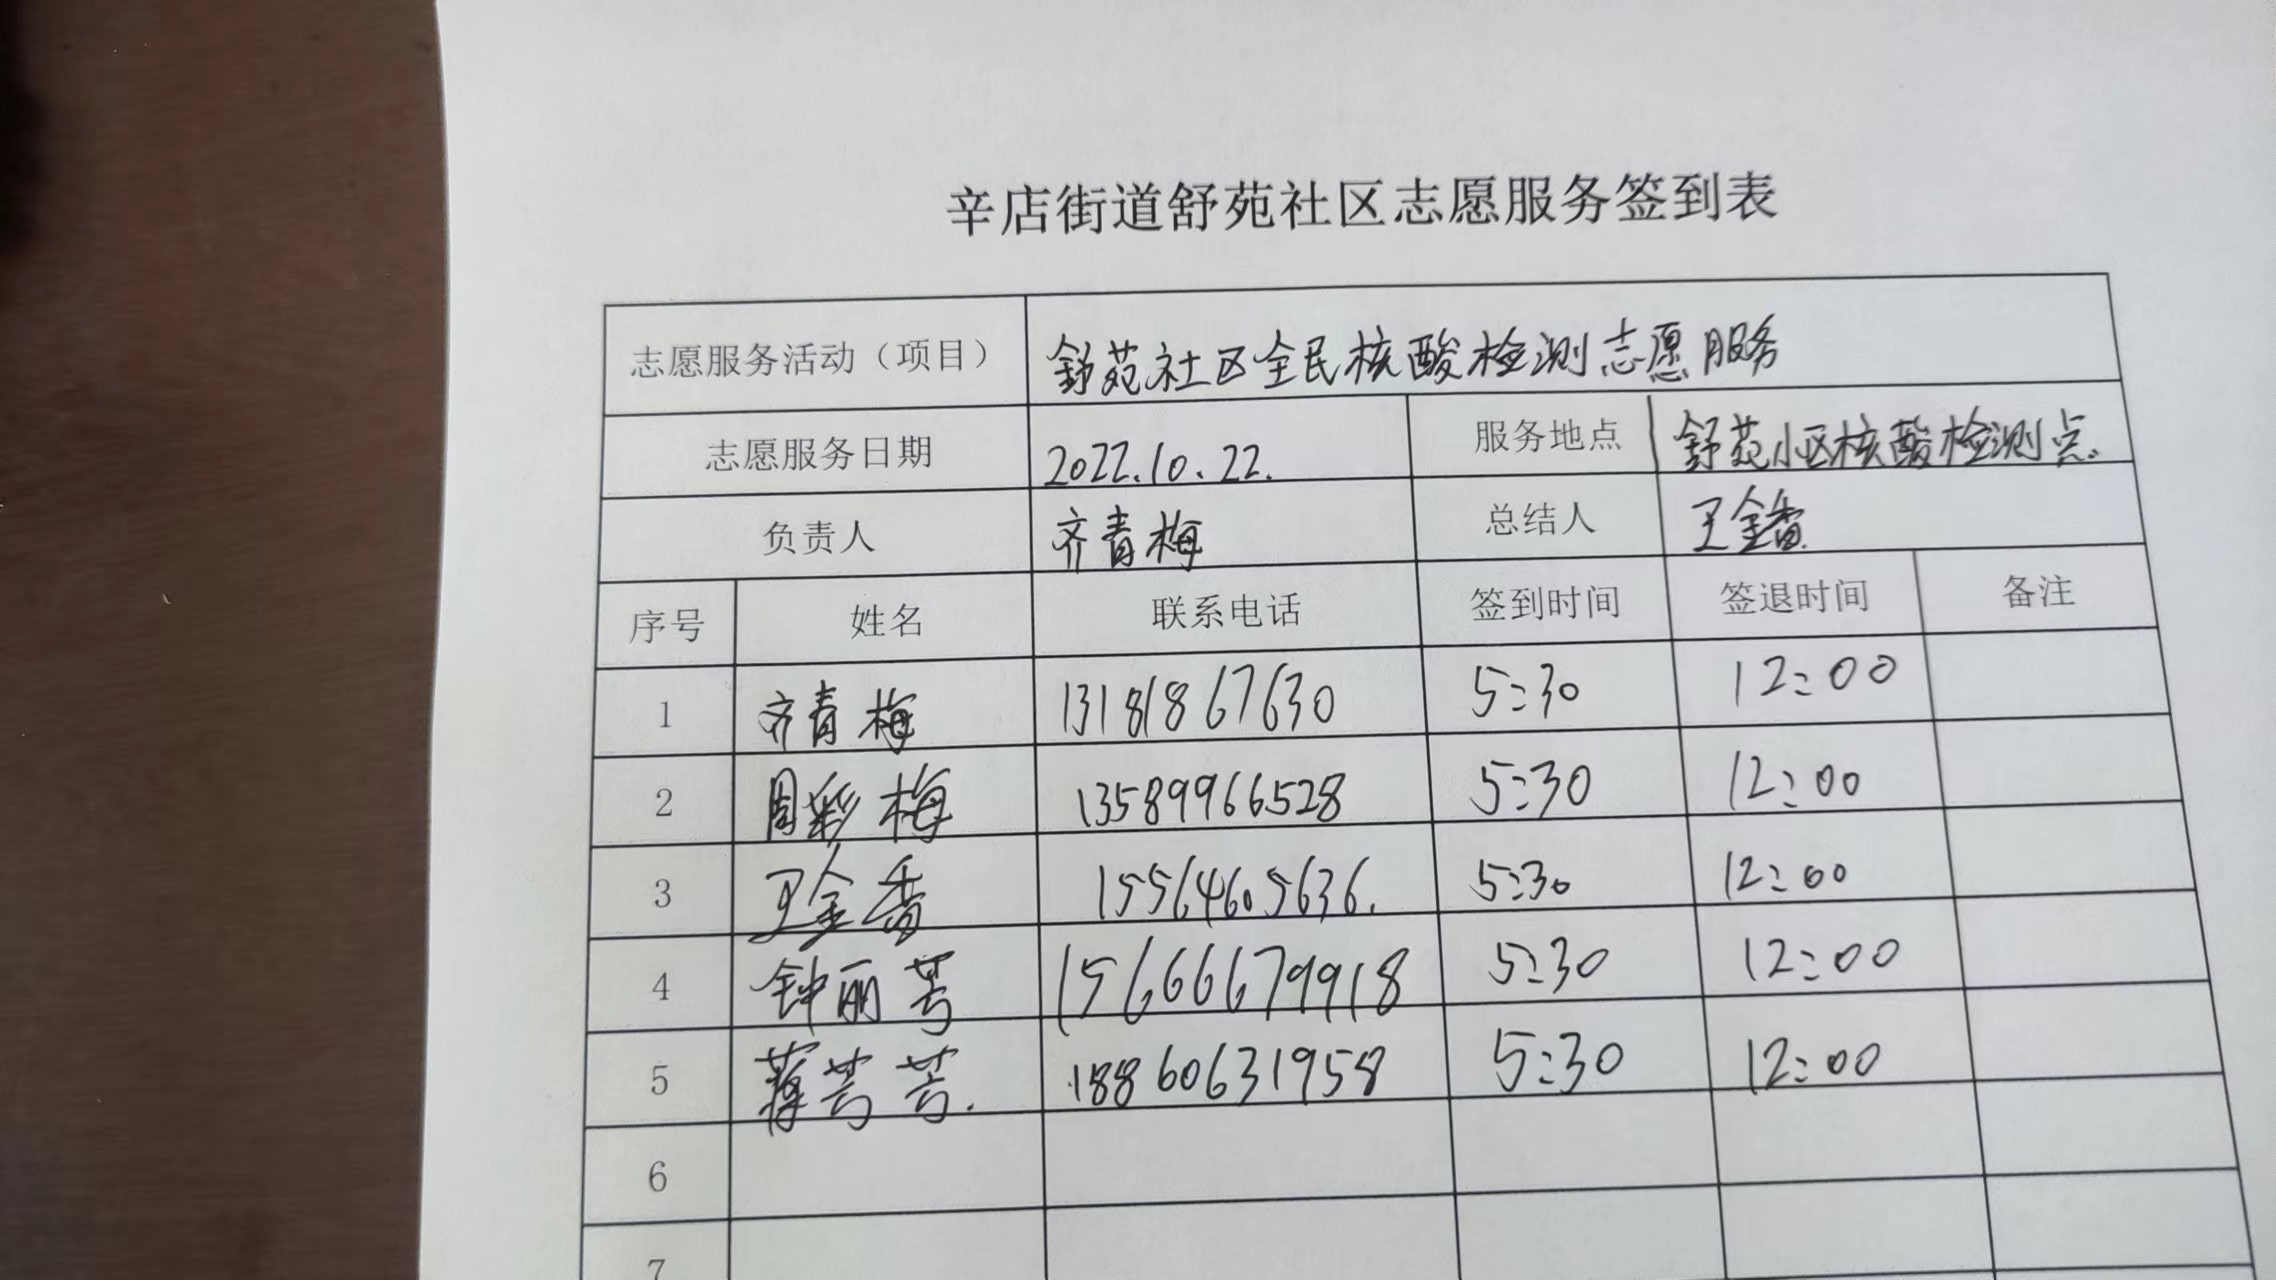 辛店街道舒苑社区志愿服务签到表
志愿服务活动（项目） 舒苑社区全民核酸检测志愿服务
志愿服务日期 2022.10.22. 服务地点 舒苑小区核酸检测点.
负责人 齐青梅 总结人 王金香
序号 姓名 联系电话 签到时间 签退时间 备注
1 齐青梅 13181867630 5:30 12:00
2 周彩梅 13589966528 5:30 12:00
3 王金香 15564605636. 5:30 12:00
4 钟丽芳 15666679918 5:30 12:00
5 蒋芳芳. 18860631958 5:30 12:00
6
7